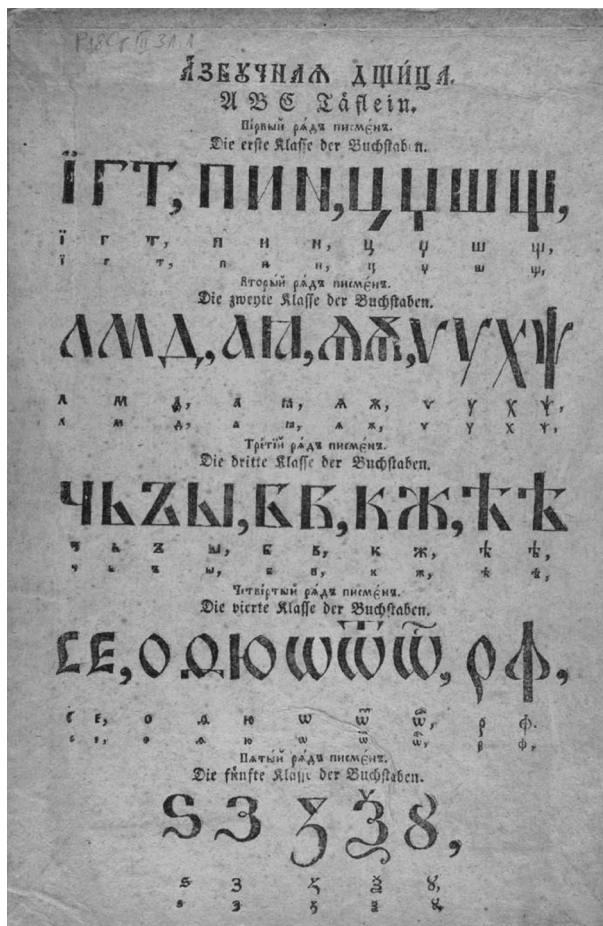 Азбучнаѧ дщи́ца.
A B C Tåflein.
Пе́рвый рѧ́дъ писме́нъ.
Die erste Klasse der Buchstaben.
Ї Г Т, П И N, Ц Џ Ш Щ,
ї г т, п и н, ц џ ш щ,
ї г т, п и н, ц џ ш щ,
Вторы́й рѧ́дъ писме́нъ.
Die zweyte Klasse der Buchstaben.
Л М Д, А Ꙗ, Ѧ Ѫ, Ѵ У Х Ѱ
л м д, а ꙗ, ѧ ѫ, ѵ у х ѱ,
л м д, а ꙗ, ѧ ѫ, ѵ у х ѱ,
Тре́тїй рѧ́дъ писме́нъ.
Die dritte Klasse der Buchstaben.
Ч Ь Ъ Ы, Б В, К Ж, Ѣ Ѣ
ч ь ъ ы, б в, к ж, ѣ ѣ,
ч ь ъ ы, б в, к ж, ѣ ѣ,
Четве́ртый рѧ́дъ писме́нъ.
Die vierte Klasse der Buchstaben.
Є Е, О Ѻ Ю Ѡ Ѿ Ѽ, Р Ф,
є е, о ѻ ю ѡ ѿ ѽ, р ф.
є е, о ѻ ю ѡ ѿ ѽ, р ф,
Пѧ́тый рѧ́дъ писме́нъ.
Die fůnfte Klasse der Buchstaben.
Ѕ З Ȝ Ѯ Ꙋ,
ѕ з ȝ ѯ ꙋ,
ѕ з ȝ ѯ ꙋ,